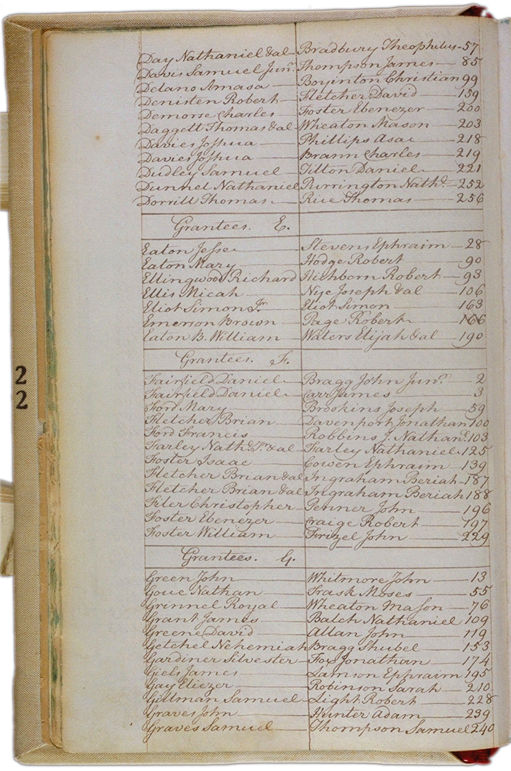 Day Nathaniel &al Bradbury Theophilus 57
Davis Samuel Junr. Thompson James 85
Delano Amasa Boyinton Christian 99
Denisten Robert Fletcher David 159
Demorse Charles Foster Ebenezer 200
Daggett Thomas &al Wheaton Mason 203
Davies Joshua Phillips Asa 218
Davies Joshua Brann Charles 219
Dudley Samuel Tilton Daniel 221
Dunnel Nathaniel Purrington Nathl. 252
Dorrill Thomas Rue Thomas 256
Grantees. E.
Eaton Jesse Stevens Ephraim 28
Eaton Mary Hodge Robert 90
Ellingwood Richard Hichborn Robert 93
Ellis Micah Nye Joseph &al 106
Eliot Simon Jr. Eliot Simon 163
Emerson Brown Page Robert 166
Eaton B. William Waters Elijah &al 190
Grantees. F.
Fairfield Daniel Bragg John Junr. 2
Fairfield Daniel Carr James 3
Ford Mary Broskins Joseph 59
Fletcher Brian Davenport Jonathan 100
Ford Francis Robbins J. Nathanl. 103
Farley Nathl. &al Farley Nathaniel 125
Foster Isaac Cowen Ephraim 139
Fletcher Brian &al Ingraham Beriah 187
Fletcher Brian &al Ingraham Beriah 188
Filer Christopher Fenner John 196
Foster Ebenezer Craige Robert 197
Foster William Frizel John 229
Grantees. G.
Green John Whitmore John 13
Goue Nathan Trask Moses 55
Grinnel Royal Wheaton Mason 76
Grant James Balch Nathaniel 109
Greene David Allan John 119
Getchel Nehemiah Bragg Shubel 153
Gardiner Silvester Fox Jonathan 174
Giels James Samson Ephraim 195
Gay Eliezer Robinson Sarah 210
Gillman Samuel Light Robert 228
Graves John Hunter Adam 239
Graves Samuel Thompson Samuel 240
2
2